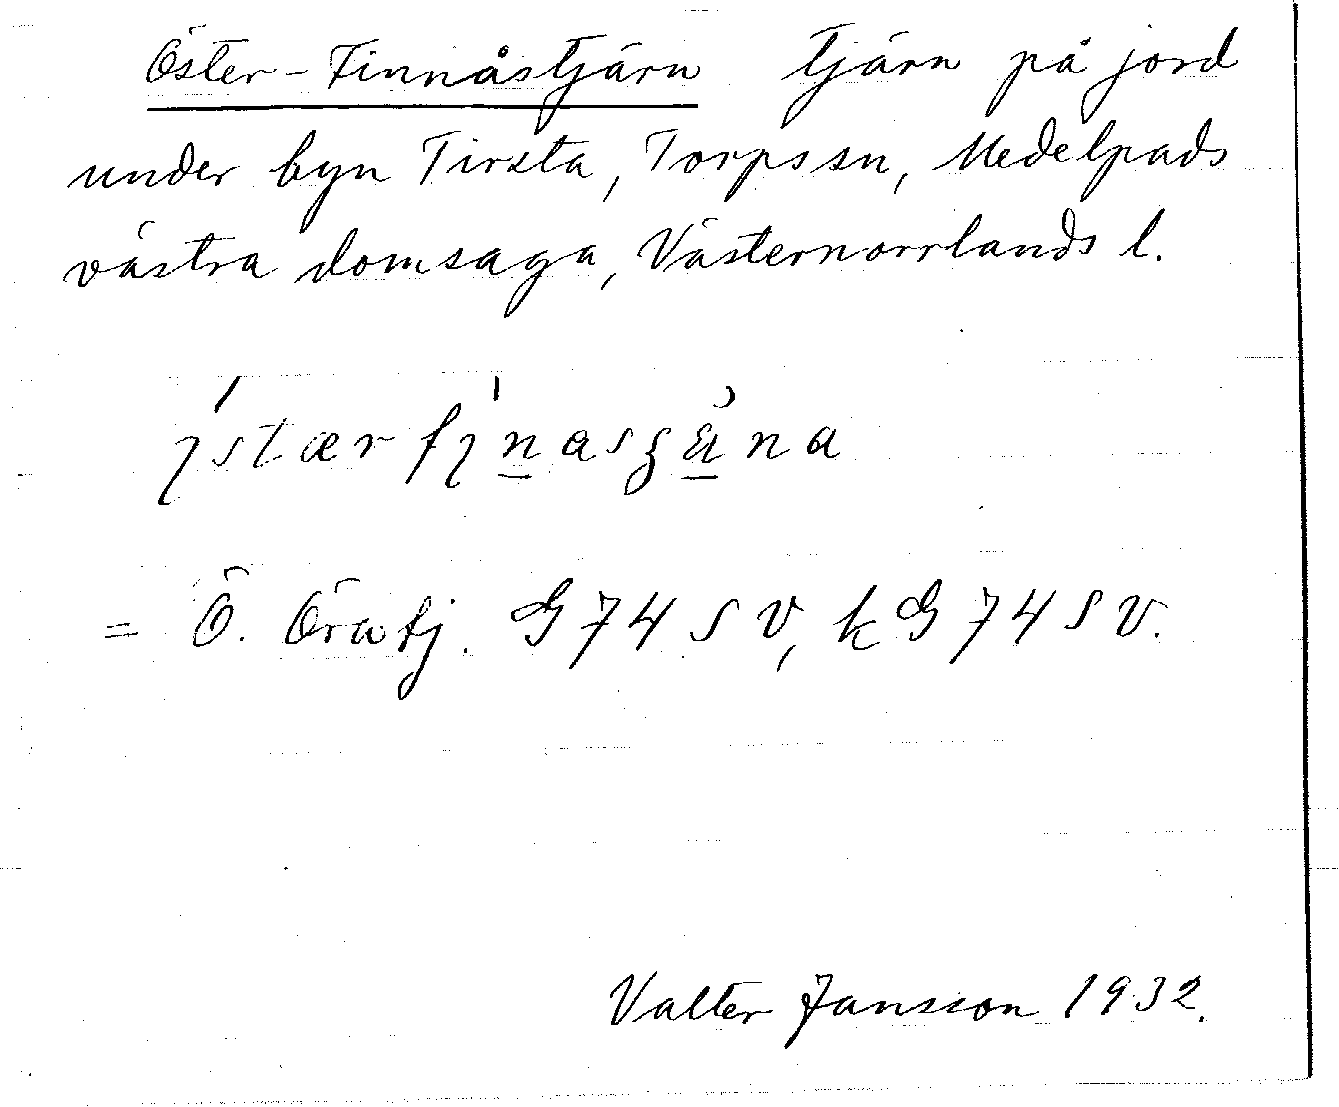 Öster-Finnåstjärn tjärn på jord
under byn Tirsta, Torpssn, Medelpads
västra domsaga, Västernorrlands l.
= Ö. Öratj. G 74 SV, kG 74 SV.
Valter Jansson 1932.